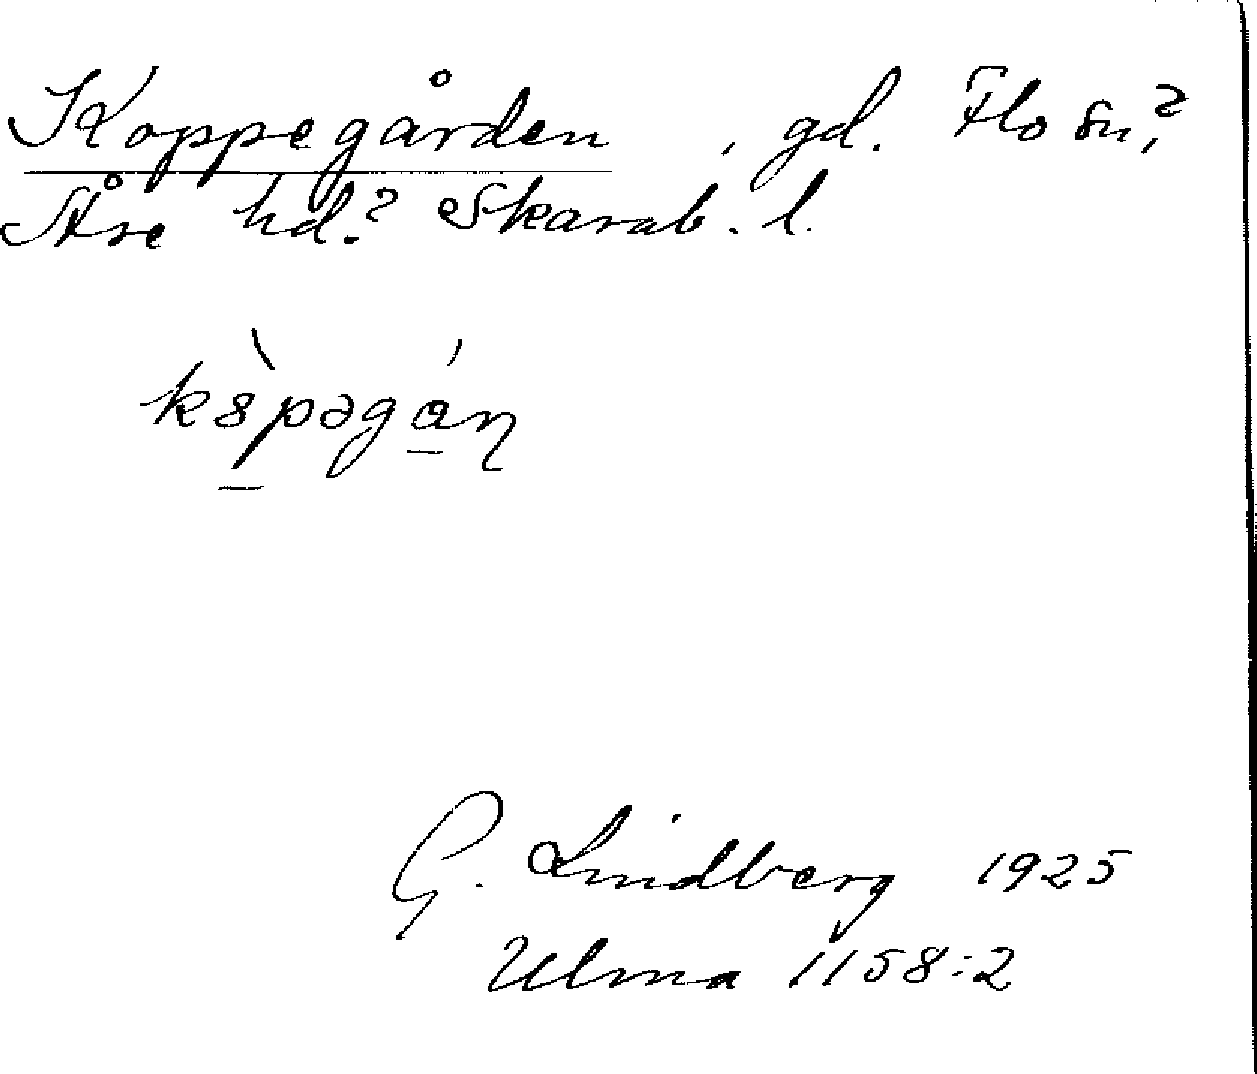 Koppegården, gd. Flo sn,?
Åse hd.? Skarab. l.
kòpəgán
G. Lindberg 1925
Ulma 1158:2